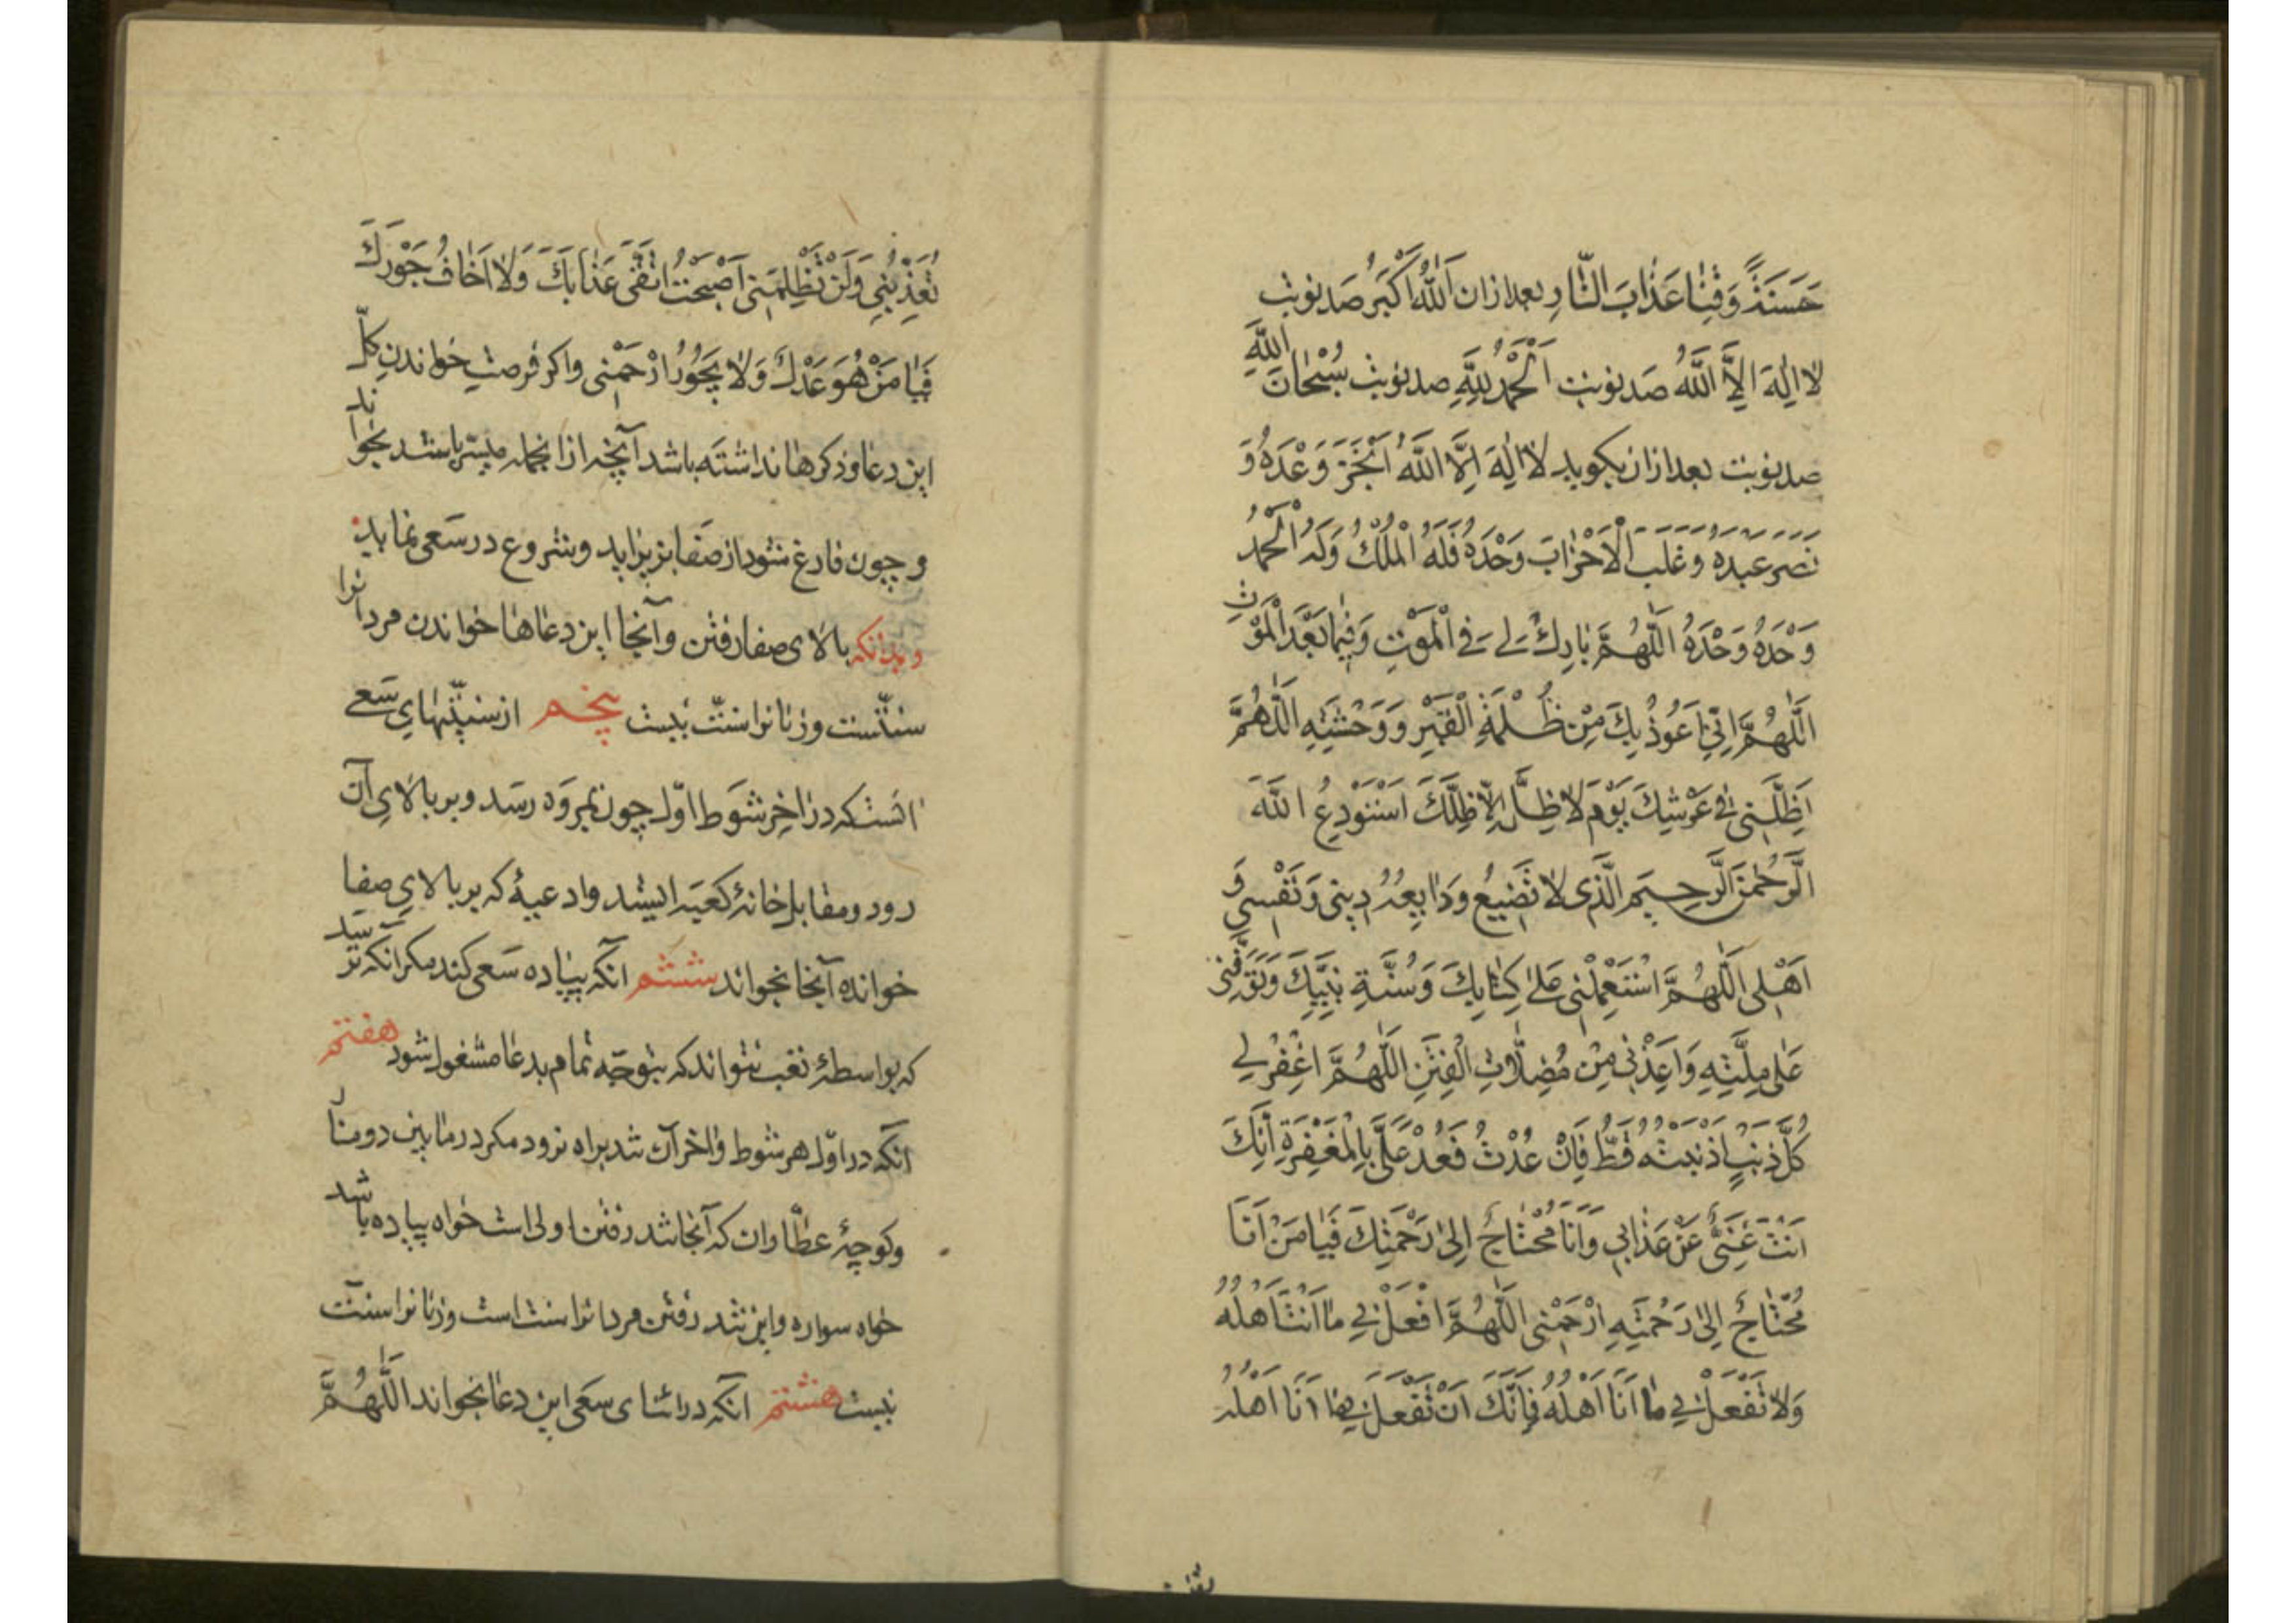 حَسَنَةً وَقِنٰا عَذٰابَ النّٰارِ بعد ازان اَللّٰهُ اَكْبَرُ صَد نوبت
لا اِلٰهَ اِلاَّ اللّٰهُ صَد نوبت اَلْحَمْدُ لِلّٰهِ صد نوبت سُبْحٰانَ اللّٰهِ
صد نوبت بعد ازان بكويد لا اِلٰهَ اِلاَّ اللّٰهُ اَنْجَزَ وَعْدَهُ وَ
نَصَرَ عَبْدَهُ وَغَلَبَ الْاَحْزٰابَ وَحْدَهُ فَلَهُ الْمُلْكُ وَلَهُ الْحَمْدُ
وَحْدَهُ وَحْدَهُ اَللّٰهُمَّ بٰارِكْ لِي فِي الْمَوْتِ وَفِيمٰا بَعْدَ الْمَوْتِ
اَللّٰهُمَّ اِنِّي اَعُوذُ بِكَ مِنْ ظُلْمَةِ الْقَبْرِ وَوَحْشَتِهِ اَللّٰهُمَّ
اَظِلَّنِي فِي عَرْشِكَ يَوْمَ لاٰ ظِلَّ اِلاّٰ ظِلُّكَ اَسْتَوْدِعُ اللّٰهَ
الرَّحْمٰنَ الرَّحِيمَ الَّذِي لاٰ تَضِيعُ وَدٰايِعُهُ دِينِي وَنَفْسِي وَ
اَهْلِي اَللّٰهُمَّ اسْتَعْمِلْنِي عَلىٰ كِتٰابِكَ وَسُنَّةِ نَبِيِّكَ وَتَوَفَّنِي
عَلىٰ مِلَّتِهِ وَاَعِذْنِي مِنْ مُضِلاّٰتِ الْفِتَنِ اَللّٰهُمَّ اغْفِرْ لِي
كُلَّ ذَنْبٍ اَذْنَبْتُهُ قَطُّ فَاِنْ عُدْتُ فَعُدْ عَلَيَّ بِالْمَغْفِرَةِ اِنَّكَ
اَنْتَ غَنِيٌّ عَنْ عَذٰابِي وَاَنَا مُحْتٰاجٌ اِلىٰ رَحْمَتِكَ فَيٰا مَنْ اَنَا
مُحْتٰاجٌ اِلىٰ رَحْمَتِهِ ارْحَمْنِي اَللّٰهُمَّ افْعَلْ بِي مٰا اَنْتَ اَهْلُهُ
وَلاٰ تَفْعَلْ بِي مٰا اَنَا اَهْلُهُ فَاِنَّكَ اَنْ تَفْعَلْ بِي مٰا اَنَا اَهْلُهُ
تُعَذِّبْنِي وَلَنْ تَظْلِمَنِي اَصْبَحْتُ اَتَّقِي عَذٰابَكَ وَلاٰ اَخٰافُ جَوْرَكَ
فَيٰا مَنْ هُوَ عَدْلٌ وَلاٰ يَجُورُ ارْحَمْنِي واكر فرصت خواندن كلّ
اين دعا وذكرها نداشته باشد آنچه از انجمله ميسّر باشد بخواند
و چون فارغ شود از صفا بزير ايد وشروع در سعى نمايد
وبدانكه بالاى صفا رفتن وآنجا اين دعاها خواندن مردانرا
سنّتست وزنانرا سنّت نيست پنجم از سنّتهاى سعى
انست كه در اخر شوط اوّل چون بمروه رسد وبر بالاى آن
رود ومقابل خانۀ كعبه ايستد وادعيۀ كه بر بالاى صفا
خوانده آنجا بخواند ششم انكه پياده سعى كند مكر انكه ترسد
كه بواسطۀ تعب نتواند كه بتوجّه تمام بدعا مشغول شود هفتم
آنكه در اوّل هر شوط واخر آن تند براه نرود مكر در مابين دو منا
وكوچۀ عطّاران كه آنجا تند رفتن اولى است خواه پياده باشد
خواه سواره واين تند رفتن مردانرا سنت است وزنانرا سنّت
نيست هشتم انكه در اثناى سعى اين دعا بخواند اَللّٰهُمَّ